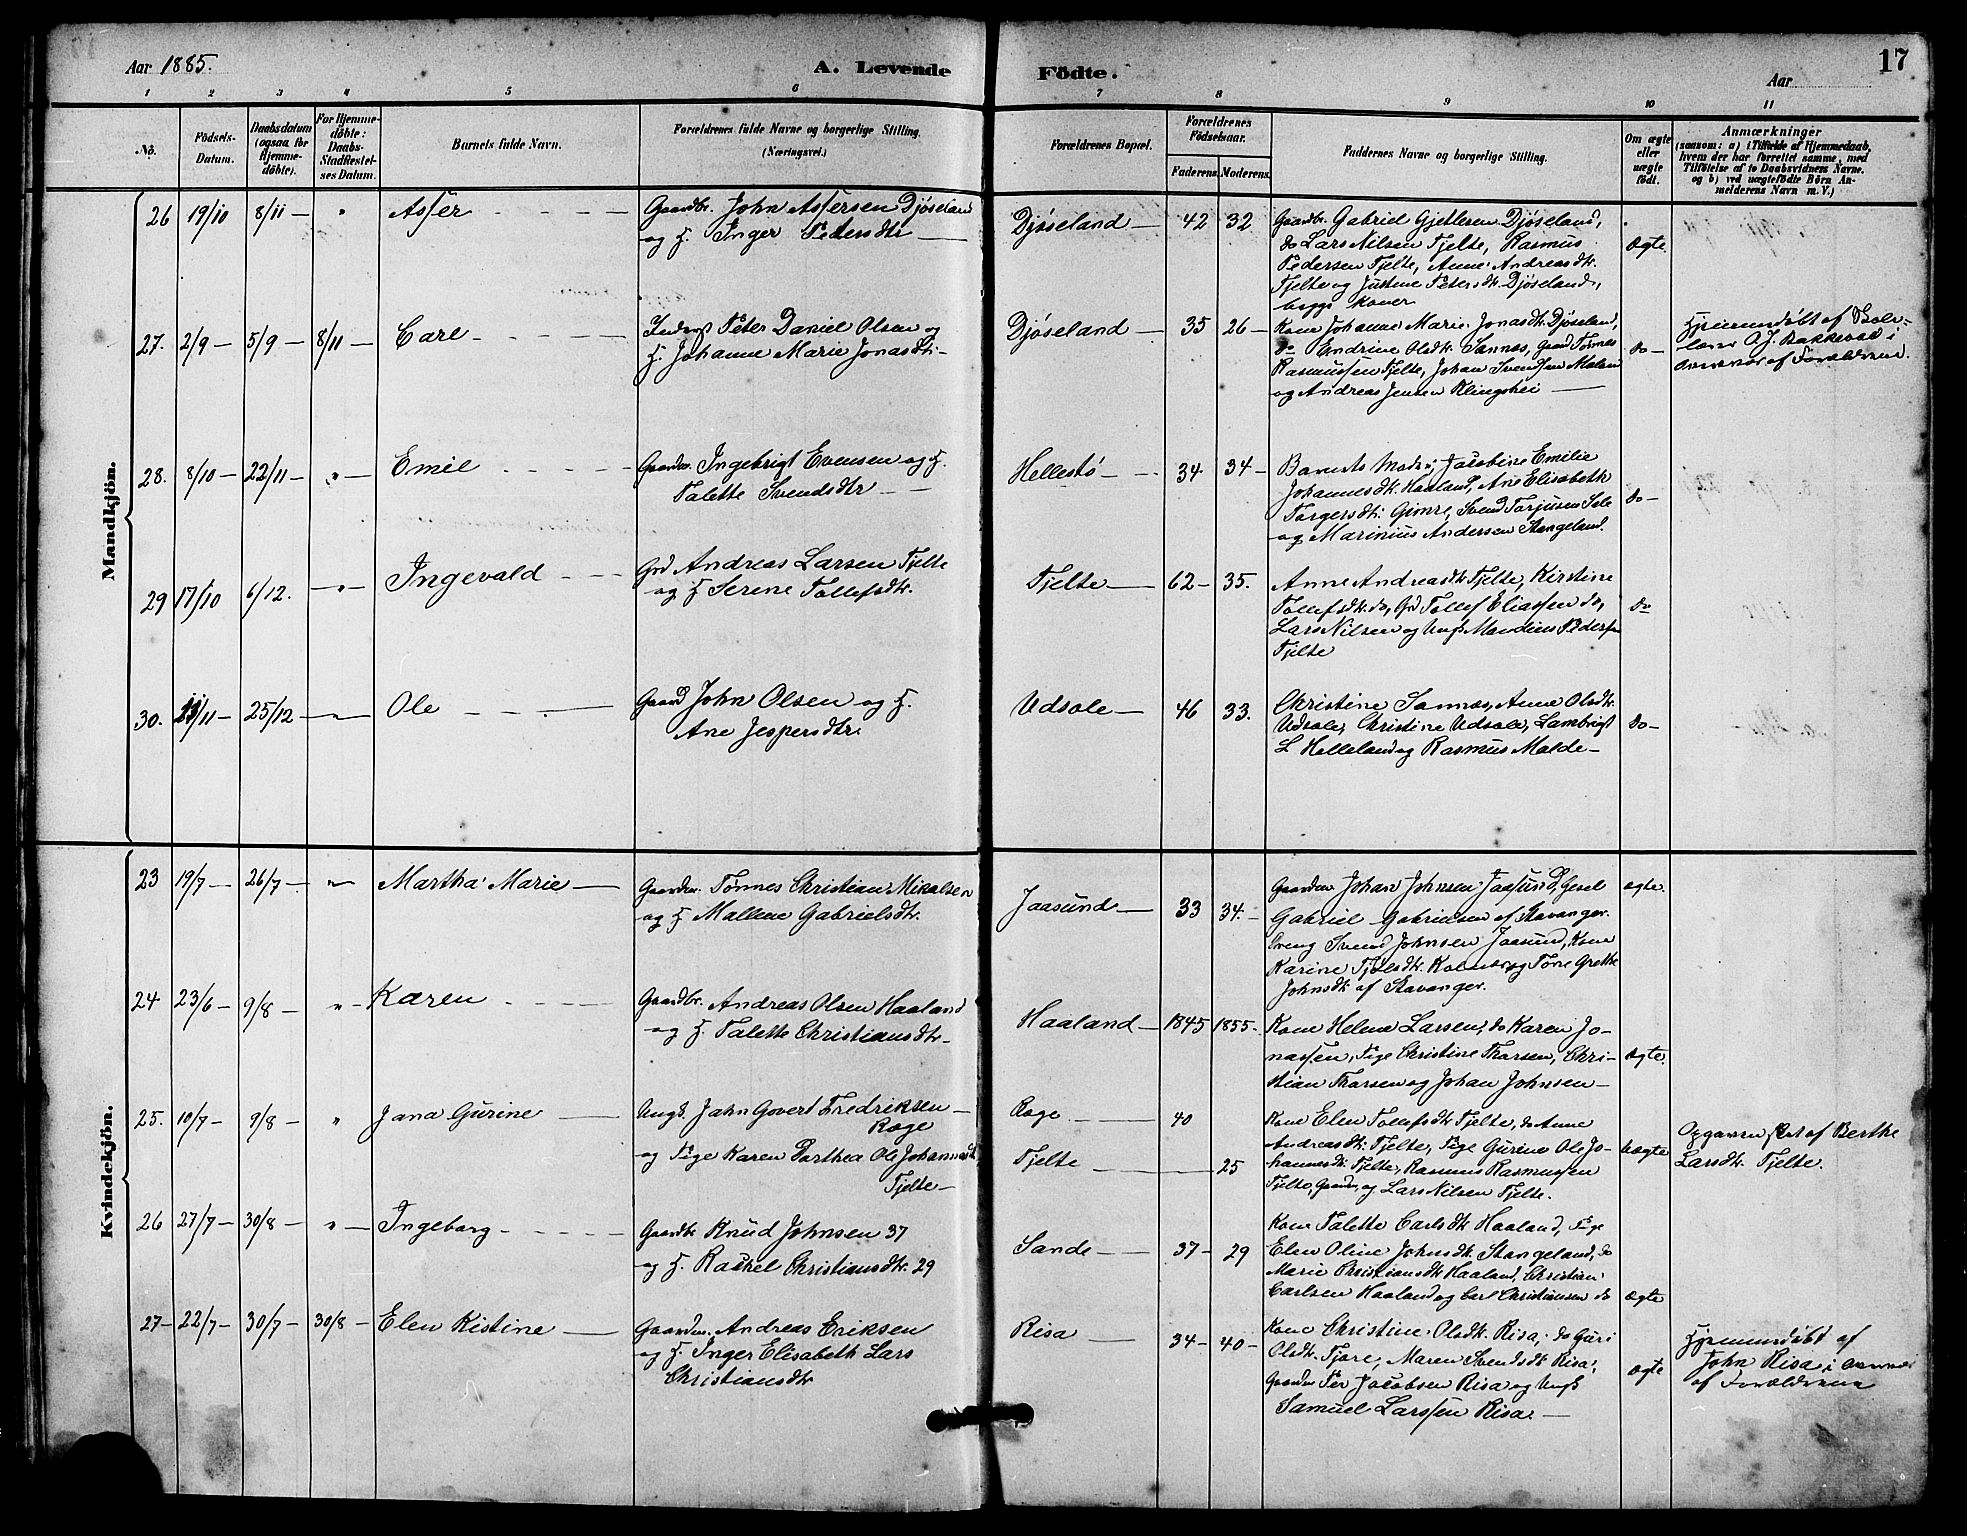 Aar 1885.
A. Levende Födte.
Aar
17
1 2 3 4 5 6 7 8 9 10 11
No.
Födsels-Datum.
Daabsdatum (ogsaa for Hjemme-döbte).
For Hjemme-döbte: Daabs-Stadfæstel-ses Datum.
Barnets fulde Navn.
Forældrenes fulde Navne og borgerlige Stilling.
(Næringsvei.)
Forældrenes Bopæl.
Forældrenes Födselsaar.
Faderens. Moderens.
Faddernes Navne og borgerlige Stilling.
Om ægte eller uægte födt.
Anmærkninger
(saasom: a) i Tilfælde af Hjemmedaab,
hvem der har forrettet samme, med
Tilföielse af to Daabsvidners Navne.
og b) ved uægtefödte Börn An-
melderens Navn m. V.)
Mandkjön.
26 19/10 8/11 " Asser
Gaardbr. John Assersen Djøseland
og H. Inger Pedersdtr
Djøseland 42 32
Gaardbr. Gabriel Gjetlesen Djøseland,
do Lars Nilsen Tjelte, Rasmus
Pedersen Tjelte, Anne Andreasdtr.
Tjelte og Justine Petersdtr. Djøseland,
begge Koner
Ægte
27. 2/9 5/9 8/11 Carl
Inderst Peter Daniel Olsen og
H. Johanne Marie Jonasdtr
Djøseland 35 26
Kone Johanne Marie Jonasdtr. Djøseland,
do Endrine Olsdtr. Sannes, Gaard Tønnes
Rasmussen Tjelte, Johan Svendsen Malen
og Andreas Jensen Klingshei
do
Hjemmedøbt af Skole-
lærer O. J. Bakkevold i
Overvær af Forældrene.
28. 8/10 22/11 " Emil
Gaardm. Ingebrigt Evensen og H.
Talette Svendsdtr
Hellestø 34 34
Barnets Moder, Jacobine Emilie
Johannesdtr. Haaland, Ane Elisabeth
Torgersdtr. Gimre, Svend Torjusen Sele
og Marinius Andersen Stangeland.
do
29 17/10 6/12. " Ingevald
Grd Andreas Larsen Tjelte
og H Serine Tollefsdtr.
Tjelte 62 35.
Anne Andreasdtr Tjelte, Kirstine
Tollefsdtr. do, Grd Tollef Eliassen do,
Lars Nilsen og Ungk Mandius Pedersen
Tjelte
do
30. 11 25/12 " Ole
Gaard John Olsen og H.
Ane Jespersdtr.
Udsole 46 33.
Christine Sannes, Anne Olsdtr.
Udsole, Christine Udsole, Lambrigt
L Helleland og Rasmus Malde
do
Kvindekjön.
23 19/7 26/7 " Martha Marie
Gaardm. Tønnes Christian Mikalsen
og H Mallene Gabrielsdtr.
Jaasund 33 34.
Gaardm Johan Johnsen Jaasund, Gesel
Gabriel Gabrielsen af Stavanger.
Dreng Svend Johnsen Jaasund, Kone
Karine Tjølsdtr. Kolnes og Tone Grethe
Johnsdtr. af Stavanger.
ægte.
24 23/6 9/8 " Karen
Gaardbr. Andreas Olsen Haaland
og H. Talette Christiansdtr.
Haaland 1845 1855.
Kone Helene Larsen, do Karen Jo-
nassen, Pige Christine Tharsen, Chri-
stian Tharsen og Johan Johnsen
Ægte
25. 10/7 9/8 " Jana Gurine
Ungk. Jahn Govert Fredriksen
Ræge
og Pige Karen Dorthea Ole Johannesdtr
Tjelte
Ræge 40
Tjelte 25
Kone Elen Tollefsdtr Tjelte, do Anne
Andreasdtr. Tjelte, Pige Gurine Ole Jo-
hannesdtr. Tjelte, Rasmus Rasmussen
Tjelte, Gaardm, og Lars Nilsen Tjelte.
uægte
Opgaven sket af Berthe
Larsdtr. Tjelte.
26 27/7 30/8 " Ingeborg
Gaardbr Knud Johnsen 37
og H. Rachel Christiansdtr. 29
Sande 37 29
Kone Talette Carlsdtr Haaland, Pige
Elen Oline Johnsdtr. Stangeland, do
Marie Christiansdtr Haaland, Christian
Carlsen Haaland og Carl Christiansen do
ægte
27 22/7 30/7 30/8 Elen Kistine
Gaardm. Andreas Eriksen
og H. Inger Elisabeth Lars
Christiansdtr
Risa 34 40
Kone Christine Olsdtr. Risa, do Guri
Olsdtr. Tjore, Maren Svendsdtr Risa,
Gaardm Per Jacobsen Risa og Ungk
Samuel Larssen Risa.
ægte
Hjemmedøbt af
John Risa i Overvær
af Forældrene